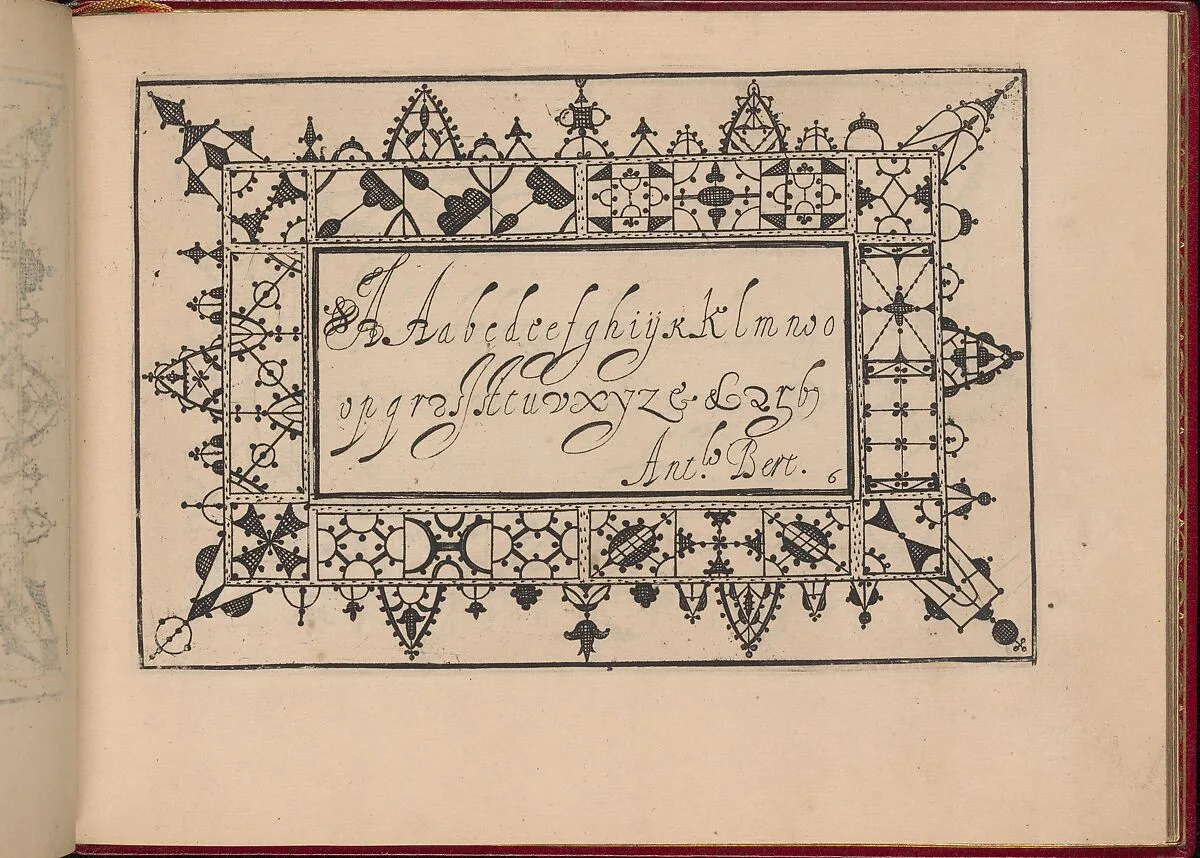 A A a b c d e e f g h i ij k K l m n w o
o p q r 2 ſ ſſ ſt t u v x y z & & 2 r b
Ant.lo Bert. 6